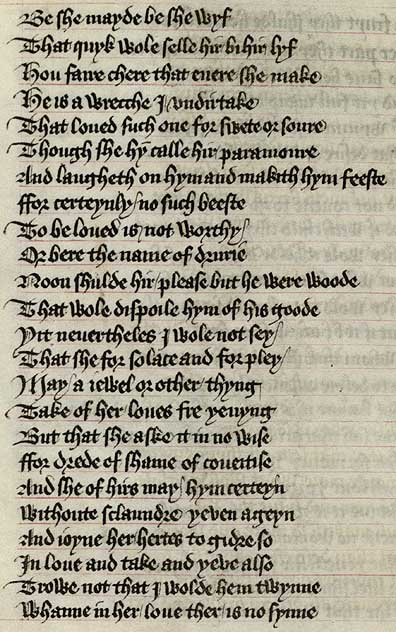 Be she mayde be she wyf
That quyk wole selle hir bi hir lyf
Hou faire chere that euere she make
He is a wrecche I vndirtake
That loued such one for swete or soure
Though she hȳ calle hir paramoure
And laugheth on hym and makith hym feeste
ffor certeynly / no such beeste
To be loued is / not worthy /
Or bere the name of drurie
Noon shulde hir / please but he were woode
That wole dispoile hym of his goode
Yit neuertheles I wole not sey /
That she for solace and for pley /
May / a iewel or other thyng
Take of her loues fre yeuyng
But that she aske it in no wise
ffor drede of shame of coueitise
And she of hirs may / hym certeyn
Withoute sclaundre yeven ageyn
And ioyne her hertes to gidre so
In loue and take and yeve also
Trowe not that I wolde hem twynne
Whanne in her loue ther is no synne